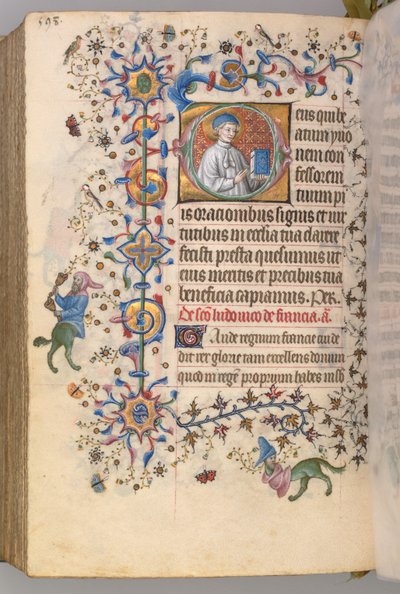 598.
Deus qui be
atum yuo
nem con
fessorem
tuum pi
is oracionibus signis et uir
tutibus in ecclia tua clarere
fecisti presta quesumus ut
eius meritis et precibus tua
beneficia capiamus. Per.
De sco ludouico de francia. a.
Gaude regnum francie cui de
dit rex glorie tam excellens donum
quod in rege proprium habes in